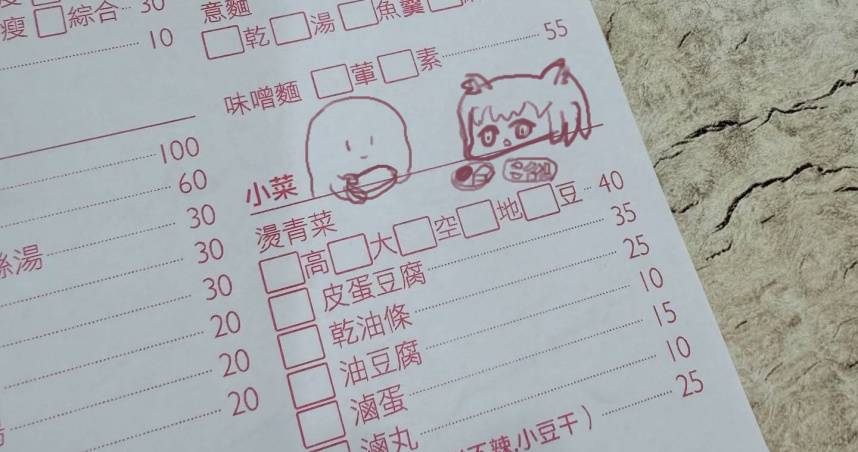 瘦 □綜合 30
10
100
60
30
絲湯 30
30
20
20
20
意麵
□乾□湯□魚羹□
味噌麵 □葷□素 55
小菜
燙青菜
□高□大□空□地□豆 40
□皮蛋豆腐 35
□乾油條 25
□油豆腐 10
□滷蛋 15
□滷丸 10
不辣,小豆干) 25